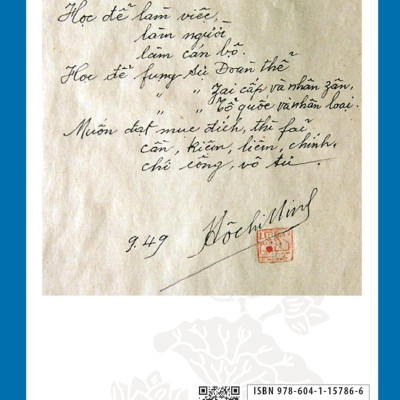 Học để làm việc,
làm người,
làm cán bộ.
Học để fụng sự Đoàn thể
" " Zai cấp và nhân zân,
" " Tổ quốc và nhân loại.
Muốn đạt mục đích, thì fải
cần, kiệm, liêm, chính,
chí công, vô tư.
9.49 Hồ Chí Minh
ISBN 978-604-1-15786-6